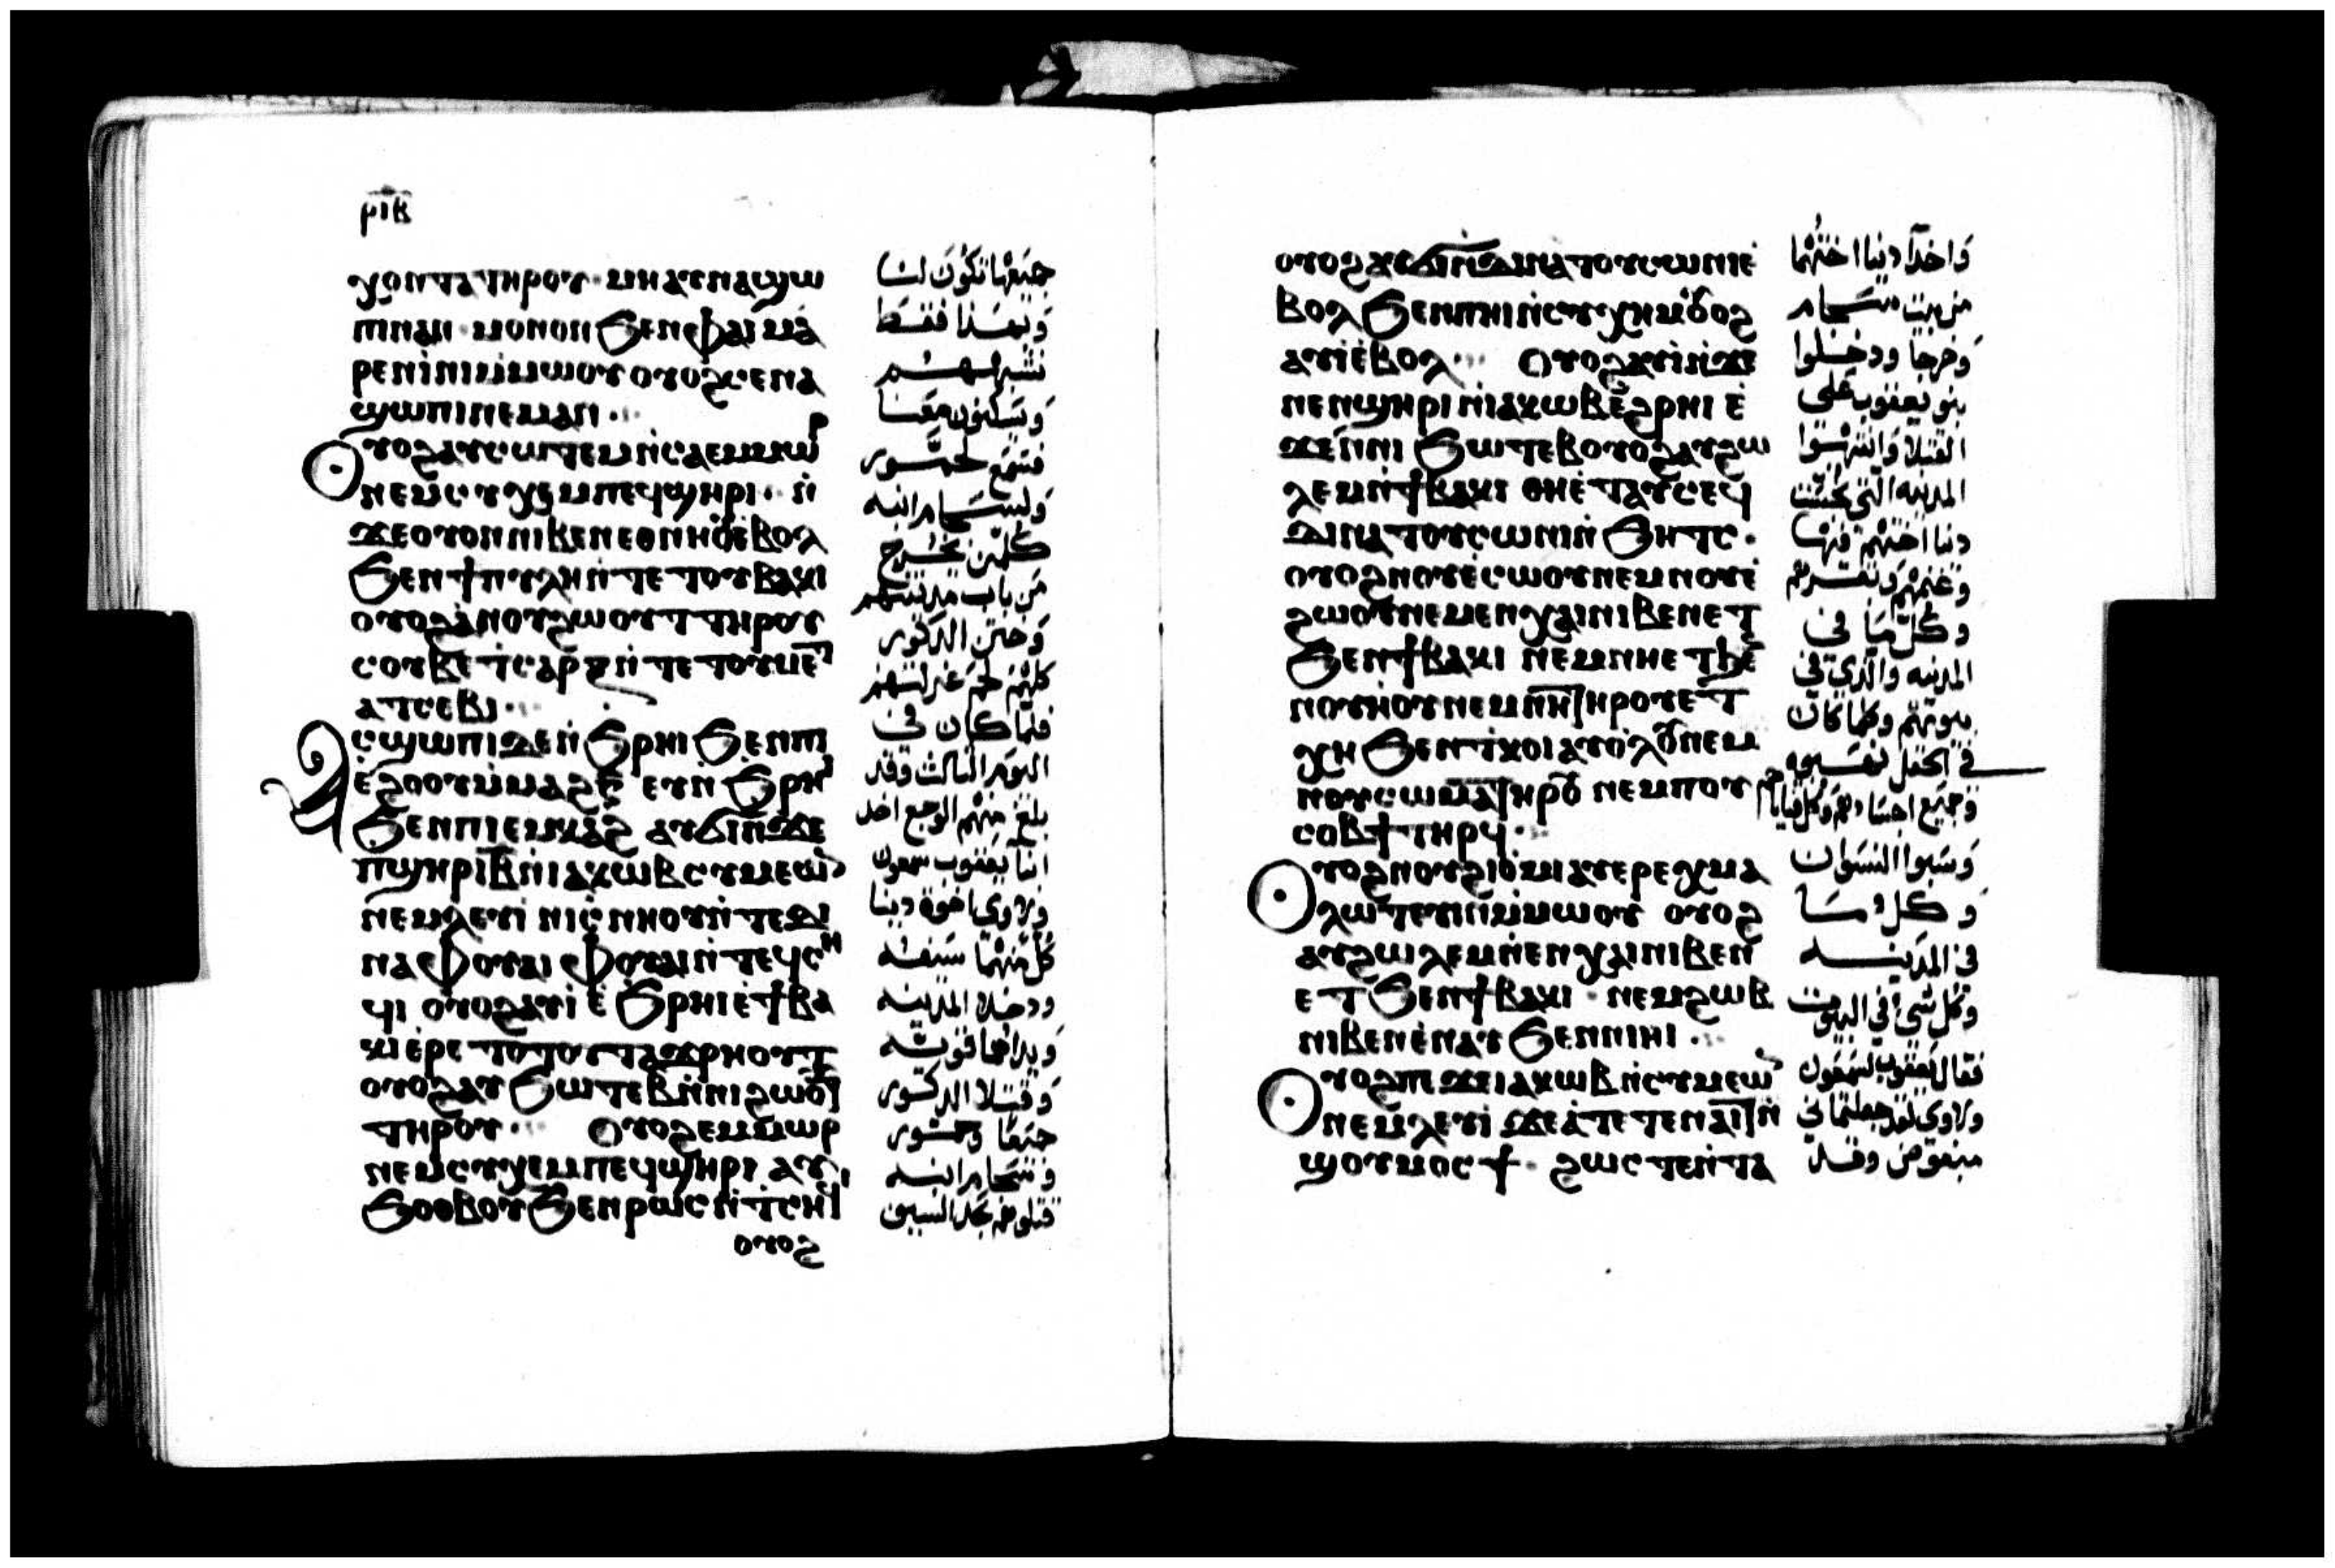 ⲣⲓⲃ
ϣⲟⲛⲧⲁ ⲧⲏⲣⲟⲩ ⲙⲏ ⲁⲩⲛⲁϣⲱ
ⲡⲓ ⲛⲁⲛ ⲙⲟⲛⲟⲛ ϧⲉⲛ ⲫⲁⲓ ⲙⲁ
ⲣⲉⲛⲓⲛⲓ ⲙⲙⲱⲟⲩ ⲟⲩⲟϩ ⲥⲉⲛⲁ
ϣⲱⲡⲓ ⲛⲉⲙⲁⲛ
ⲟⲩⲟϩ ⲁⲩⲥⲱⲧⲉⲙ ⲛⲥⲁ ⲉⲙⲙⲱⲣ
ⲛⲉⲙ ⲥⲩⲭⲉⲙ ⲡⲉϥϣⲏⲣⲓ ⲛ
ϫⲉ ⲟⲩⲟⲛ ⲛⲓⲃⲉⲛ ⲉⲑⲛⲏⲟⲩ ⲉⲃⲟⲗ
ϧⲉⲛ ϯⲡⲩⲗⲏ ⲛⲧⲉ ⲧⲟⲩⲃⲁⲕⲓ
ⲟⲩⲟϩ ⲛⲟⲩϩⲱⲟⲩⲧ ⲧⲏⲣⲟⲩ
ⲥⲟⲩⲃⲉ ⲧⲥⲁⲣⲝ ⲛⲧⲉ ⲧⲟⲩⲙⲉⲧ
ⲁⲧⲥⲉⲃⲓ
ⲁⲥϣⲱⲡⲓ ⲇⲉ ⲛϧⲣⲏⲓ ϧⲉⲛ ⲡⲓ
ⲉϩⲟⲟⲩ ⲙⲙⲁϩⲅ ⲉⲩⲛϧⲣⲏⲓ
ϧⲉⲛ ⲡⲓⲉⲙⲕⲁϩ ⲁⲩϭⲓ ⲛϫⲉ
ⲡϣⲏⲣⲓ ⲃ ⲛⲓⲁⲕⲱⲃ ⲥⲩⲙⲉⲱⲛ
ⲛⲉⲙ ⲗⲉⲩⲓ ⲛⲓⲥⲛⲏⲟⲩ ⲛⲧⲉ ⲇⲓ
ⲛⲁ ⲫⲟⲩⲁⲓ ⲫⲟⲩⲁⲓ ⲛⲧⲉϥⲥⲏ
ϥⲓ ⲟⲩⲟϩ ⲁⲩⲓ ⲉϧⲣⲏⲓ ⲉϯⲃⲁ
ⲕⲓ ⲉⲣⲉ ⲧⲟⲧⲟⲩ ⲧⲁϫⲣⲏⲟⲩⲧ
ⲟⲩⲟϩ ⲁⲩϧⲱⲧⲉⲃ ⲛⲛⲓϩⲱⲟⲩⲧ
ⲧⲏⲣⲟⲩ ⲟⲩⲟϩ ⲉⲙⲙⲱⲣ
ⲛⲉⲙ ⲥⲩⲭⲉⲙ ⲡⲉϥϣⲏⲣⲓ ⲁⲩ
ϧⲟⲑⲃⲟⲩ ϧⲉⲛ ⲣⲱⲥ ⲛⲧⲥⲏϥⲓ
ⲟⲩⲟϩ
جميعها تكون لنا
وبهذا فقط
نشبههم
ويسكنون معنا
فسمع لحمور
ولسخام ابنه
كلمن يخرج
من باب مدينتهم
وختن الذكور
كلهم لحم غرلتهم
فلما كان في
اليوم الثالث وقد
بلغ منهم الوجع اخذ
ابنا يعقوب سمعون
ولاوي اخوة دينا
كل منهما سيفه
ودخلا المدينه
ويداهما قويه
وقتلا الذكور
جميعا وحمور
وسخام ابنه
قتلوهم بحد السيف
ⲟⲩⲟϩ ⲁⲩϭⲓ ⲛⲇⲓⲛⲁ ⲧⲟⲩⲥⲱⲛⲓ ⲉ
ⲃⲟⲗ ϧⲉⲛ ⲡⲏⲓ ⲛⲥⲩⲭⲏⲙ ⲟⲩⲟϩ
ⲁⲩⲓ ⲉⲃⲟⲗ ⲟⲩⲟϩ ⲁⲩⲓ ⲛϫⲉ
ⲛⲉⲛϣⲏⲣⲓ ⲛⲓⲁⲕⲱⲃ ⲉϩⲣⲏⲓ ⲉ
ϫⲉⲛ ⲛⲓϧⲱⲧⲉⲃ ⲟⲩⲟϩ ⲁⲩϩⲱ
ⲗⲉⲙ ⲛϯⲃⲁⲕⲓ ⲑⲏ ⲉⲧⲁⲩⲥⲉϥ
ⲇⲓⲛⲁ ⲧⲟⲩⲥⲱⲛⲓ ⲛϧⲏⲧⲥ
ⲟⲩⲟϩ ⲛⲟⲩⲉⲥⲱⲟⲩ ⲛⲉⲙ ⲛⲟⲩⲉ
ϩⲱⲟⲩ ⲛⲉⲙ ⲉⲛⲭⲁⲓ ⲛⲓⲃⲉⲛ ⲉⲧ
ϧⲉⲛ ϯⲃⲁⲕⲓ ⲛⲉⲙ ⲛⲏ ⲉⲧϧⲉⲛ
ⲛⲟⲩⲏⲟⲩ ⲛⲉⲙ ⲛⲏ ⲧⲏⲣⲟⲩ ⲉⲧ
ⲭⲏ ϧⲉⲛ ⲧⲕⲟⲓ ⲁⲩⲟⲗⲟⲩ ⲛⲉⲙ
ⲛⲟⲩⲥⲱⲙⲁ ⲧⲏⲣⲟⲩ ⲛⲉⲙ ⲡⲟⲩ
ⲥⲟⲃϯ ⲧⲏⲣϥ
ⲟⲩⲟϩ ⲛⲟⲩϩⲓⲟⲙⲓ ⲁⲩⲉⲣⲉⲭⲙⲁ
ⲗⲱⲧⲉⲩⲓⲛ ⲙⲙⲱⲟⲩ ⲟⲩⲟϩ
ⲁⲩϩⲱⲗⲉⲙ ⲛⲉⲛⲭⲁⲓ ⲛⲓⲃⲉⲛ
ⲉⲧϧⲉⲛ ϯⲃⲁⲕⲓ ⲛⲉⲙ ϩⲱⲃ
ⲛⲓⲃⲉⲛ ⲉⲛⲁⲩ ϧⲉⲛ ⲛⲓⲏⲓ
ⲟⲩⲟϩ ⲡⲉϫⲉ ⲓⲁⲕⲱⲃ ⲛⲥⲩⲙⲉⲱⲛ
ⲛⲉⲙ ⲗⲉⲩⲓ ϫⲉ ⲁⲧⲉⲧⲉⲛⲁⲓⲧ ⲛ
ϣⲟⲩⲙⲟⲥϯ ϩⲱⲥⲧⲉ ⲛⲧⲁ
واخذا دينا اختهما
من بيت سخام
وخرجا ودخلوا
بنو يعقوب على
القتلا وانتهبوا
المدينه التي نجست
دينا اختهم فيها
وغنمهم وبقرهم
وكل ما في
المدينه والذي في
بيوتهم وكلما كان
في الحقل نهبوه
وجميع اجسادهم
وسبوا النسوان
وكل ما
في المدينه
وكل شي في البيوت
فقال يعقوب لسمعون
ولاوي لقد جعلتماني
مبغوض